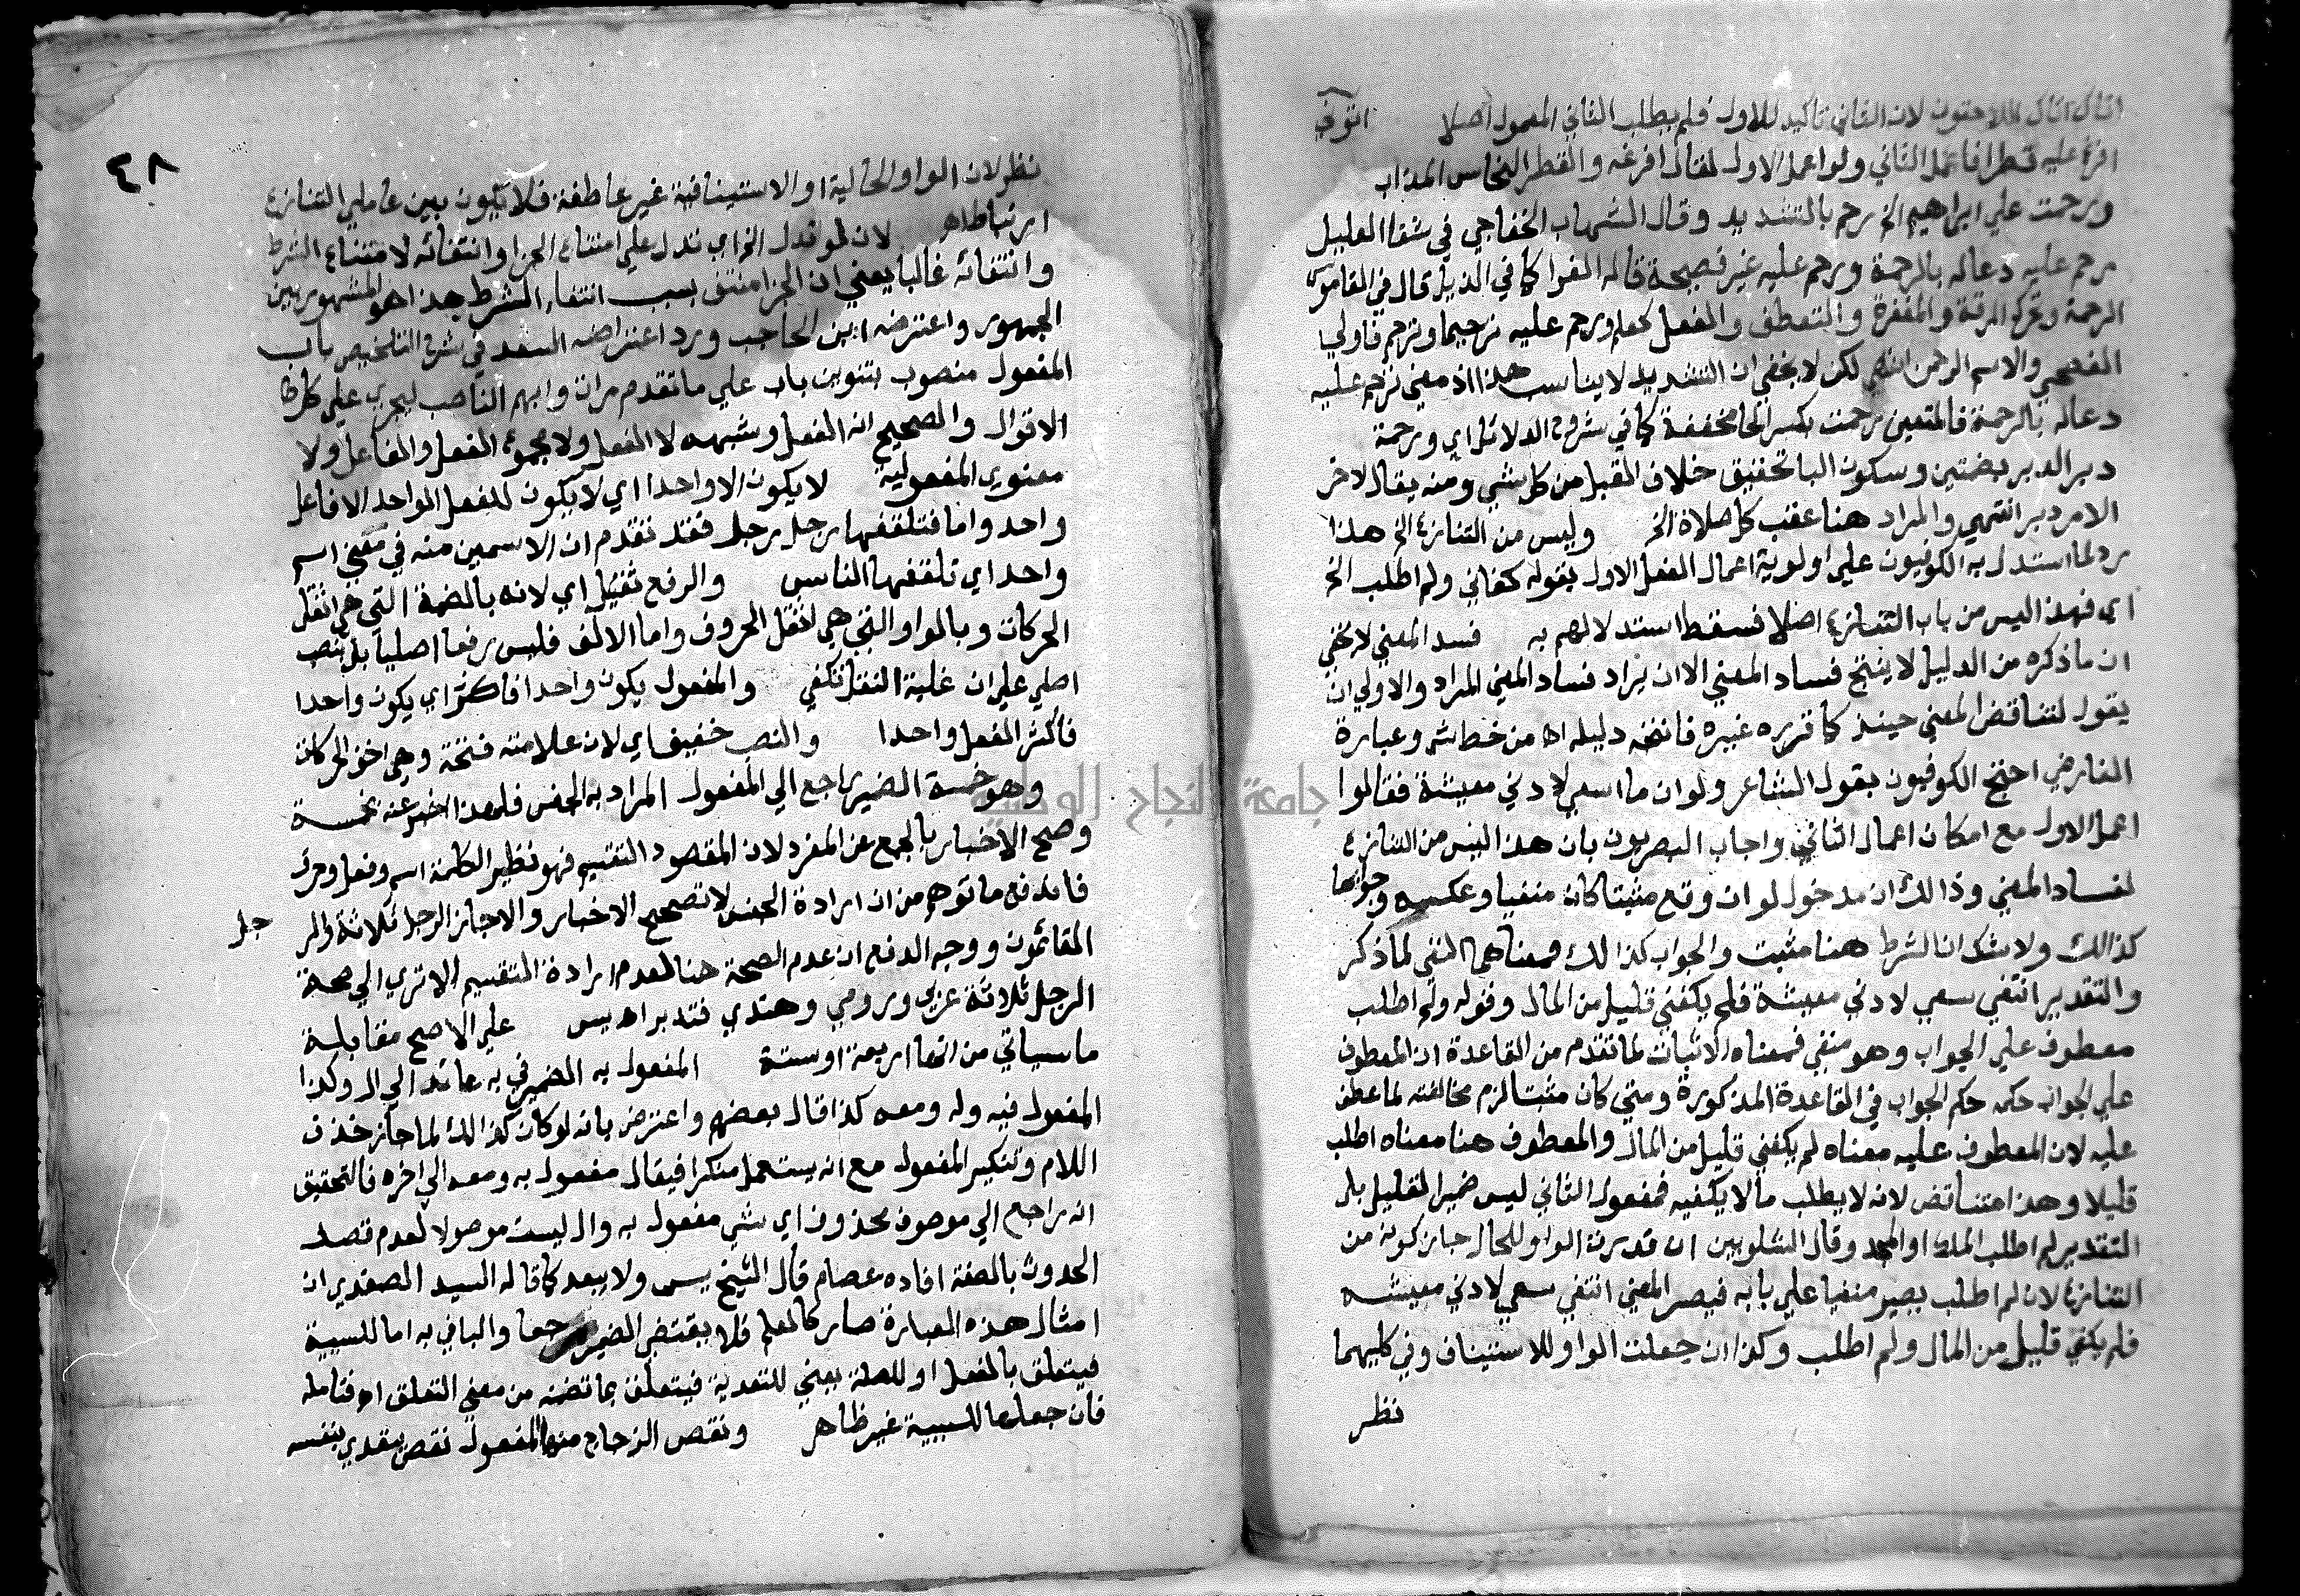 اتاك اتاك اللاحقون لان الثاني تاكيد للاول فلم يطلب الثاني المعمول اصلا اتوني
افرغ عليه قطرا فاعمل الثاني ولو اعمل الاول لقال افرغه والقطر النحاس المذاب
ورحمت علي ابراهيم الخ رحم بالتشديد وقال الشهاب الخفاجي في شفا العليل
رحم عليه دعا له بالرحمة ورحم عليه غير فصيحة قاله الفرا كما في الذيل قال في القاموس
الرحمة وتحرك الرقة والمغفرة والتعطف والفعل كعلم ورحم عليه ترحيما وترحم فاولي
الفصحي والاسم الرحمن انتهي لكن لا يخفي ان التشديد لا يناسب هذا اذ معني ترحم عليه
دعا له بالرحمة فالمتعين رحمت بكسر الحا مخففة كما في شروح الدلائل اي ورحمة
دبر الدبر بضمتين وسكون البا تخفيف خلاف القبل من كل شي ومنه يقال لاخر
الامر دبر انتهي والمراد هنا عقب كل صلاة الخ وليس من التنازع الخ هذا
رد لما استدل به الكوفيون علي اولوية اعمال الفعل الاول بقوله كفاني ولم اطلب الخ
اي فهذا ليس من باب التنازع اصلا فسقط استدلالهم به فسد المعني لا يخفي
ان ما ذكره من الدليل لا ينتج فساد المعني الا ان يراد فساد المعني المراد والاولي ان
يقول لتناقض المعني حينئذ كما قرره غيره فانتجه دليله اه من خط ش وعبارة
الفارضي احتج الكوفيون بقول الشاعر ولو ان ما اسعي لادني معيشة فقالوا
اعمل الاول مع امكان اعمال الثاني واجاب البصريون بان هذا ليس من التنازع
لفساد المعني وذالك ان مدخول لو ان وقع مثبتا كان منفيا وعكسه وجوابها
كذالك ولا شك ان الشرط هنا مثبت والجواب كذالك فمعناهما النفي لما ذكر
والتقدير انتفي سعي لادني معيشة فلم يكفني قليل من المال وقوله ولم اطلب
معطوف علي الجواب وهو منفي فمعناه الاثبات لما تقدم من القاعدة ان المعطوف
علي الجواب حكمه حكم الجواب في القاعدة المذكورة ومتي كان مثبتا لزم مخالفته لما عطف
عليه لان المعطوف عليه معناه لم يكفني قليل من المال والمعطوف هنا معناه اطلب
قليلا وهذا متناقض لانه لا يطلب ما لا يكفيه فمفعول الثاني ليس ضمير القليل بل
التقدير لم اطلب الملك او المجد وقال الشلوبين ان قدرت الواو للحال جاز كونه من
التنازع لان لم اطلب يصير منفيا علي بابه فيصير المعني انتفي سعيي لادني معيشه
فلم يكفي قليل من المال ولم اطلب وكذا ان جعلت الواو للاستيناف وفي كليهما
نظر
٤٨
نظر لان الواو الحالية او الاستينافية غير عاطفة فلا يكون بين عاملي التنازع
ارتباط اه لان لو تدل الخ اي تدل علي امتناع الجزا وانتفائه لامتناع الشرط
وانتفائه غالبا يعني ان الجزا منتف بسبب انتفاء الشرط هذا هو المشهور بين
الجمهور واعترضه ابن الحاجب ورد اعتراضه السعد في شرح التلخيص باب
المفعول منصوب بتنوين باب علي ما تقدم مرات وابهم الناصب ليجري علي كل
الاقوال والصحيح انه الفعل وشبهه لا الفعل ولا مجموع الفعل والفاعل ولا
معنوي المفعولية لا يكون الا واحدا اي لا يكون للفعل الواحد الا فاعل
واحد واما فتلقفها رجل رجل فقد تقدم ان الاسمين منه في معني اسم
واحد اي تلقفها الناس والرفع ثقيل اي لانه بالضمة التي هي اثقل
الحركات وبالواو التي هي اثقل الحروف واما الالف فليس رفعا اصليا بل نصب
اصلي علي ان غلبة الثقل تكفي والمفعول يكون واحدا فاكثر اي يكون واحدا
فاكثر الفعل واحدا والنصب خفيف اي لان علامته فتحة وهي اخف الحركات
وهو خمسة الضمير راجع الي المفعول المراد به الجنس فلهذا اخبر عنه بخمسة
وصح الاخبار بالجمع عن المفرد لان المقصود التقسيم فهو نظير الكلمة اسم وفعل وحرف
فاندفع ما توهم من ان ارادة الجنس لا تصحح الاخبار والا جاز الرجل ثلاثة والر جل
القائمون ووجه الدفع ان عدم الصحة هنا لعدم ارادة التقسيم الا تري الي صحة
الرجل ثلاثة عربي ورومي وهندي فتدبر اه يس علي الاصح مقابله
ما سياتي من انها اربعة او ستة المفعول به الضمير في به عائد الي ال وكذا
المفعول فيه وله ومعه كذا قال بعضهم واعترض بانه لو كان كذالك لما جاز حذف
اللام وتنكير المفعول مع انه يستعمل منكرا فيقال مفعول به ومعه الي اخره فالتحقيق
انه راجع الي موصوف محذوف اي شي مفعول به وال ليست موصولا لعدم قصد
الحدوث بالصفة افاده عصام قال الشيخ يس ولا يبعد كما قاله السيد الصفدي ان
امثال هذه العبارة صار كالعلم فلا يقتضي الضمير مرجعا والبا في به اما للسببية
فيتعلق بالفعل او للصلة يعني للتعدية فيتعلق بما تضمنه من معني التعلق اه فتامله
فان جعلها للسببية غير ظاهر ونقص الزجاج منها المفعول نقص يتعدي بنفسه